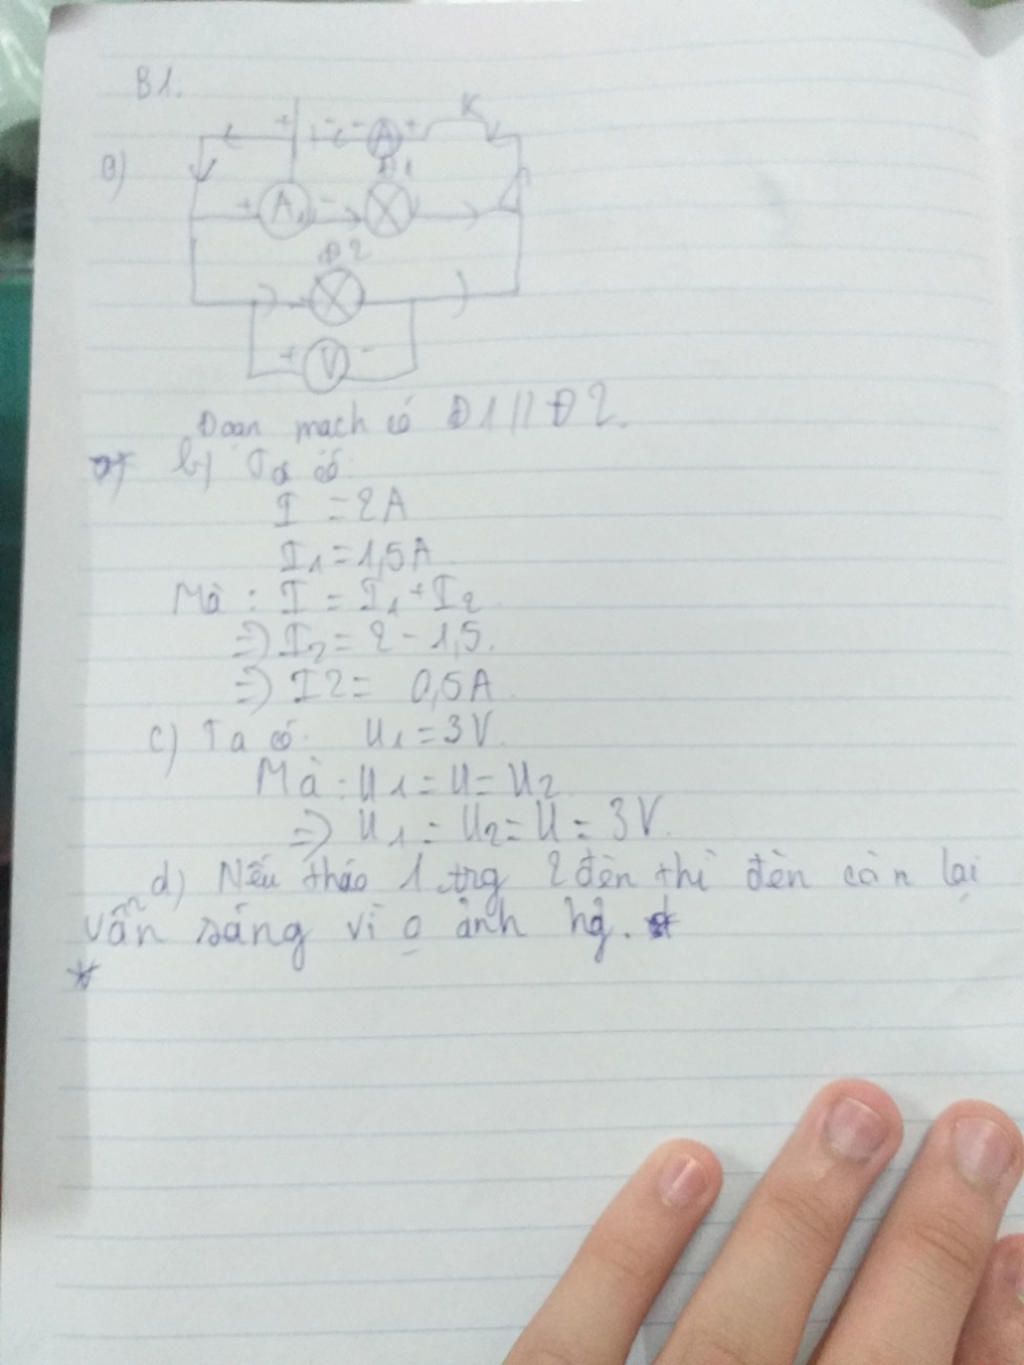 B1.
K
+ - - A +
a)
Đ1
+ A1 -
Đ2
+ V -
Đoạn mạch có Đ1 // Đ2.
b) Ta có
I = 2A
I1 = 1,5A
Mà : I = I1 + I2
=> I2 = 2 - 1,5.
=> I2 = 0,5A
c) Ta có: U1 = 3V.
Mà : U1 = U = U2
=> U1 = U2 = U = 3V.
d) Nếu tháo 1 trg 2 đèn thì đèn còn lại
vẫn sáng vì o ảnh hg.